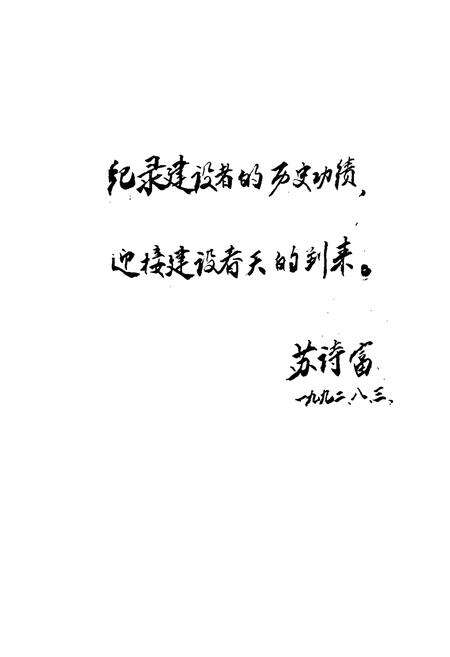 纪录建设者的历史功绩，
迎接建设春天的到来。
苏诗富
一九九二、八、三、